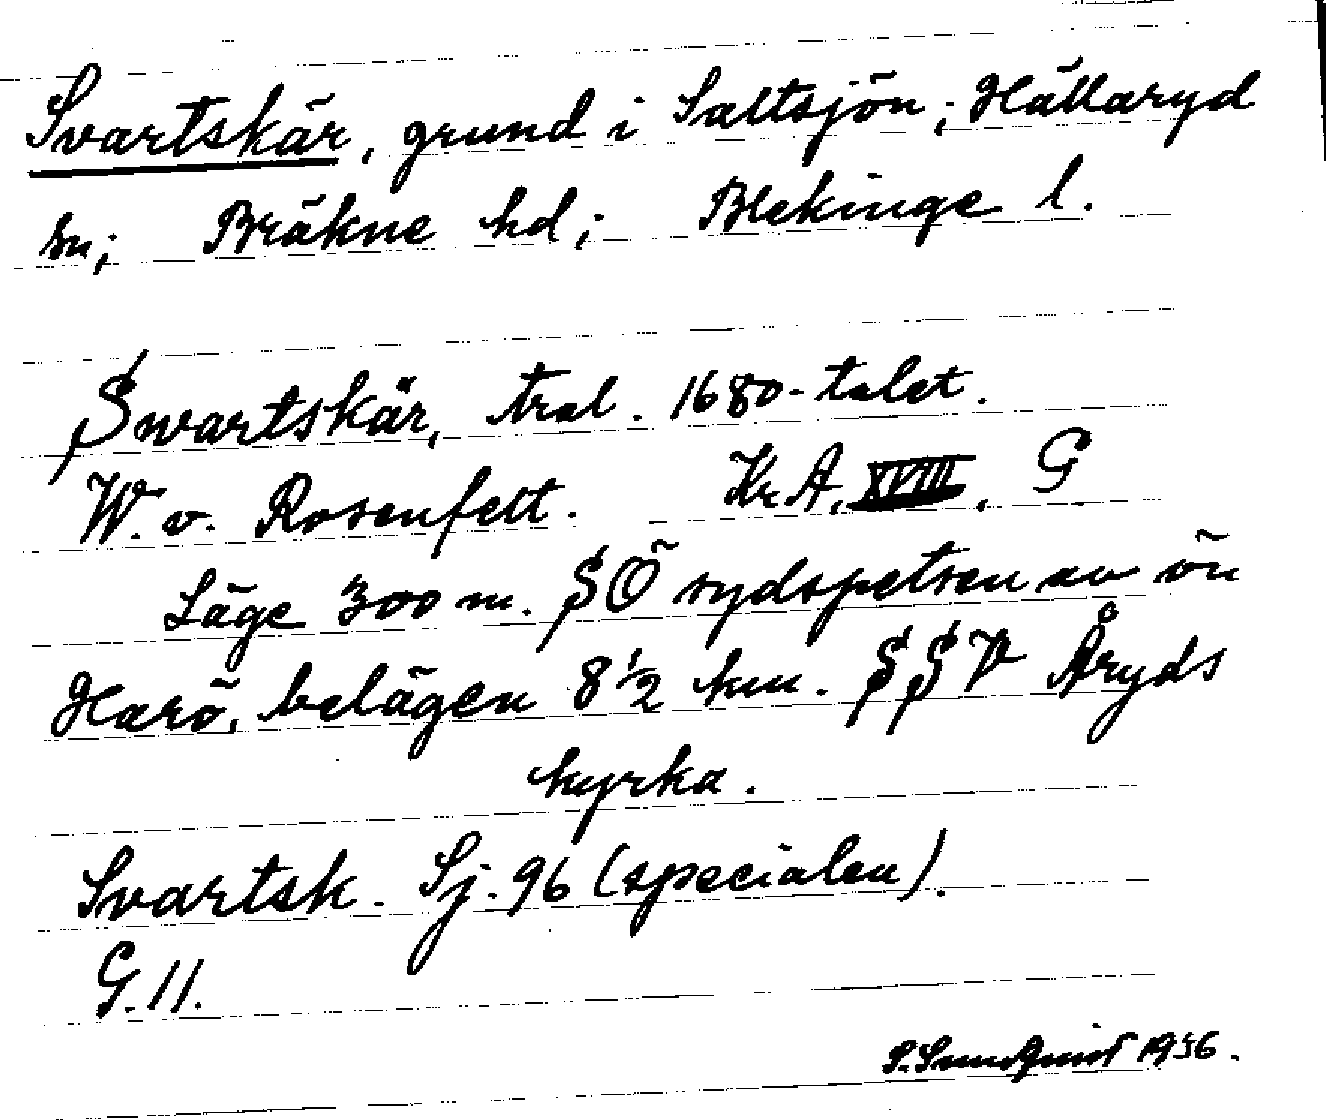 Svartskär, grund i Saltsjön; Hällaryd
sn; Bräkne hd; Blekinge l.
Swartskär, tral. 1680-talet.
W. v. Rosenfelt. Kr.A, XVIII, G
Läge 300 m. SÖ sydspetsen av ön
Harö, belägen 8 1/2 km. SSV Åryds
kyrka.
Svartsk. Sj. 96 (specialen).
G. 11.
1936.